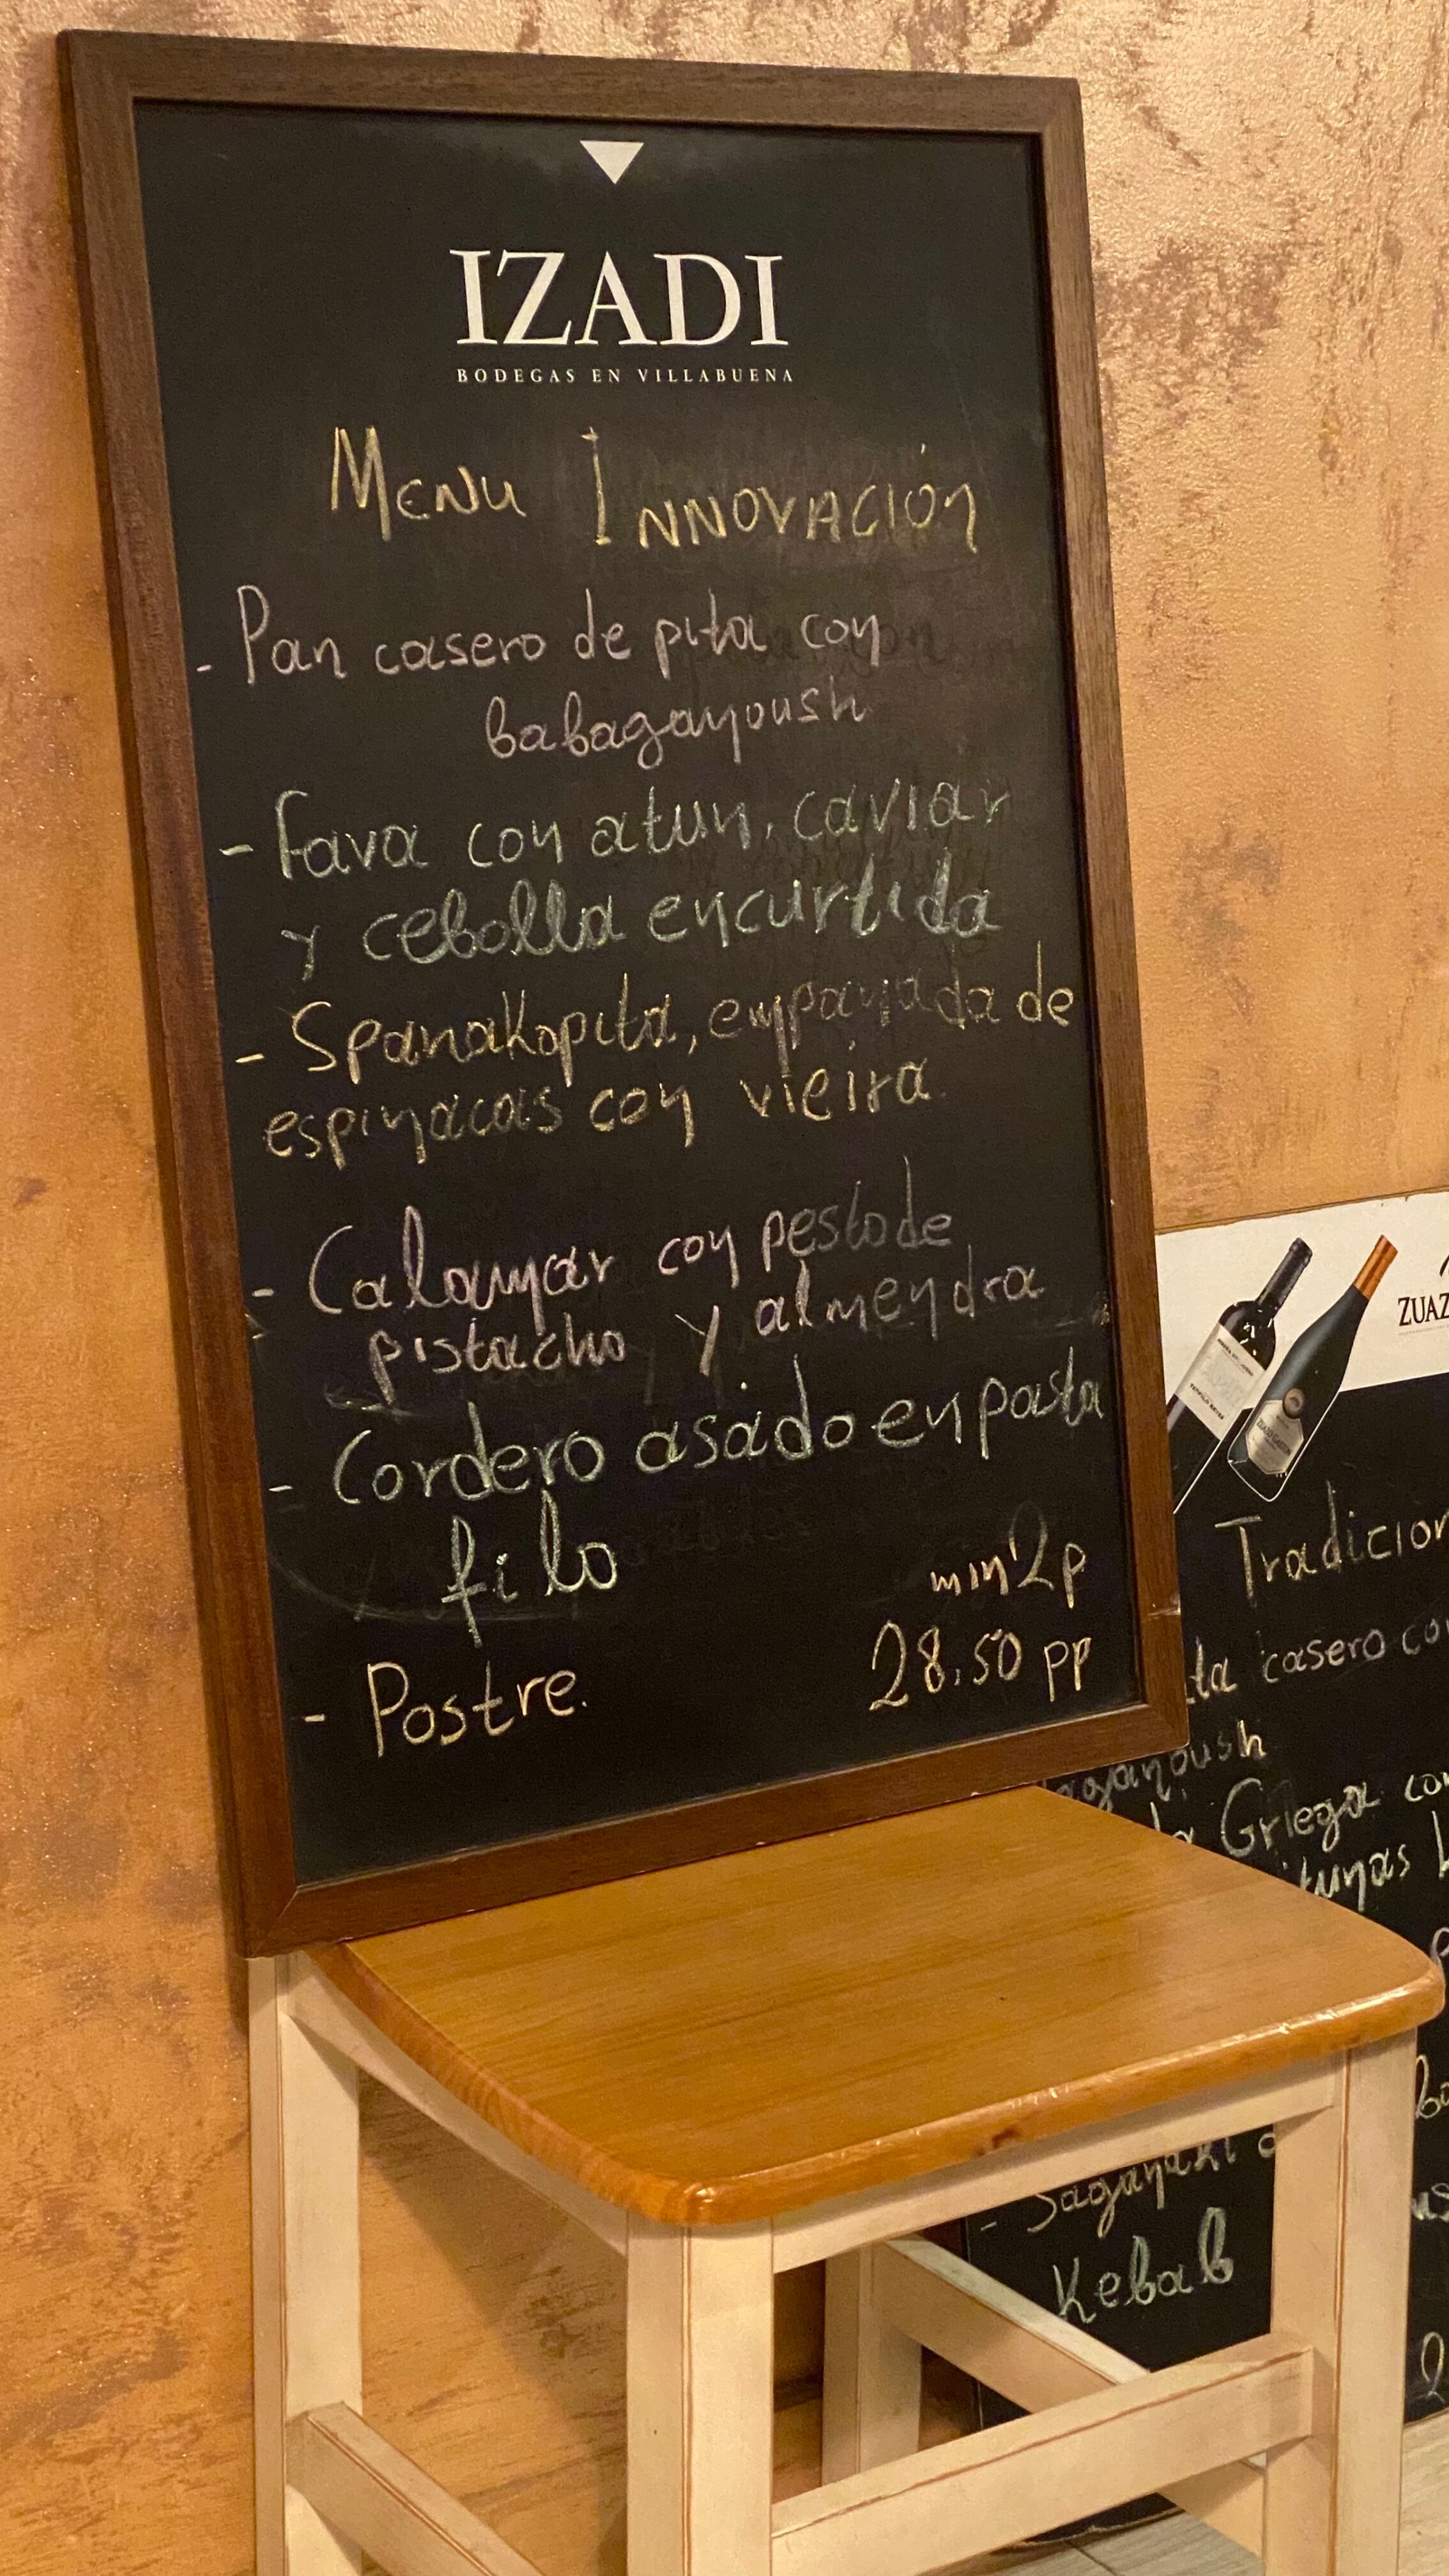 IZADI
BODEGAS EN VILLABUENA
Menu Innovación
- Pan casero de pita con
babaganoush
- Fava con atun, caviar
y cebolla encurtida
- Spanakopita, empanada de
espinacas con vieira.
- Calamar con pesto de
pistacho y almendra
- Cordero asado en pasta
filo
min 2p
28.50 pp
- Postre.
ZUAZ
Tradicion
ita casero con
aganoush
Griega con
itunas
- Saganaki
Kebab